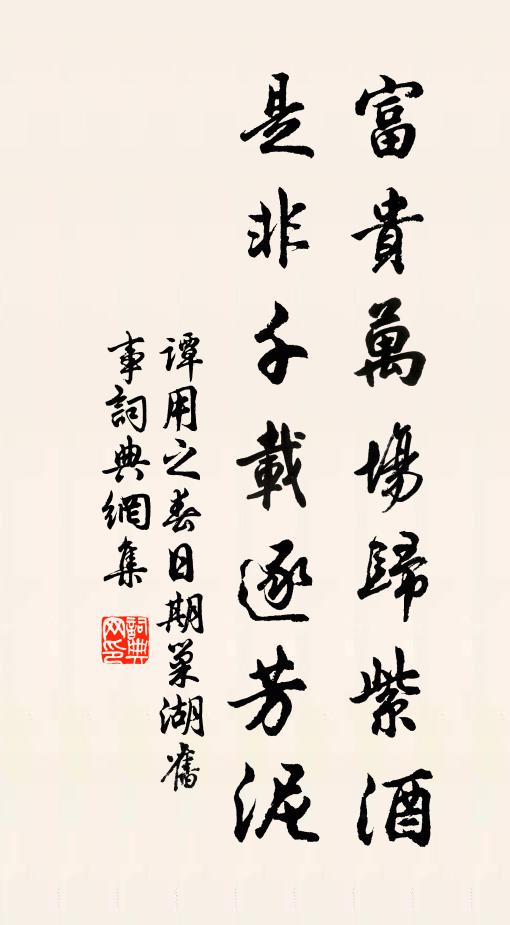 富貴萬場歸紫酒
是非千載逐芳泥
谭用之春日期巢湖舊
事詞典網集
詞典
网印